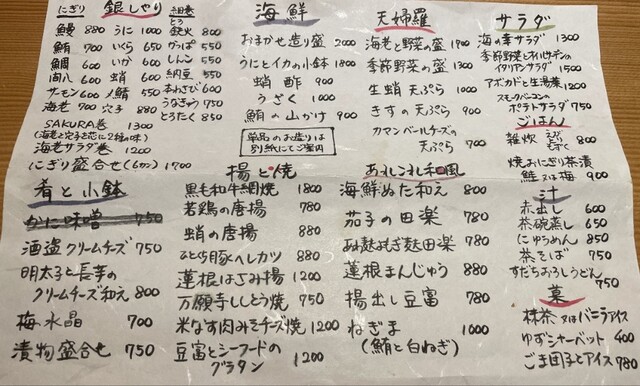 にぎり 銀しゃり
鰻 880 うに 1000
鮪 700 いくら 650
鯛 600 いか 600
間八 600 蛸 600
サーモン 600 〆鯖 550
海老 700 穴子 880
SAKURA巻 1300
(海老と穴子を芯にして2種の味)
海老サラダ巻 1200
にぎり盛合せ(6カン) 1700
細巻
とろ
鉄火 800
かっぱ 550
しんこ 550
納豆 550
本わさび 600
うなきゅう 750
とろたく 850
海鮮
おまかせ造り盛 2000
うにとイカの小鉢 1800
蛸酢 900
うざく 1000
鮪の山かけ 900
単品のお造りは
別紙にてご案内
天婦羅
海老と野菜の盛 1900
季節野菜の盛 1300
生蛸 天ぷら 1000
きすの天ぷら 900
カマンベールチーズの
天ぷら 700
サラダ
海の幸サラダ 1300
季節野菜と
イタリアンサラダ 1500
アボカドと生湯葉 1200
スモークベーコンの
ポテトサラダ 750
ごはん
雑炊 800
焼おにぎり茶漬
鮭又は梅 900
汁
赤出し 600
茶碗蒸し 650
にゅうめん 850
茶そば 750
すだちおろしうどん 750
菓
抹茶又はバニラアイス
ゆずシャーベット 400
ごま団子とアイス 780
肴と小鉢
かに味噌 750
酒盗クリームチーズ 750
明太子と長芋の
クリームチーズ和え 800
梅水晶 700
漬物盛合せ 750
揚と焼
黒毛和牛網焼 1800
若鶏の唐揚 780
蛸の唐揚 880
ひとくち豚ヘレカツ 880
蓮根はさみ揚 1200
万願寺ししとう焼 750
米なす肉みそチーズ焼 1200
豆富とシーフードの
グラタン 1200
あれこれ和風
海鮮ぬた和え 800
茄子の田楽 780
あわ麩よもぎ麩田楽 780
蓮根まんじゅう 880
揚出し豆富 780
ねぎま 1000
(鮪と白ねぎ)